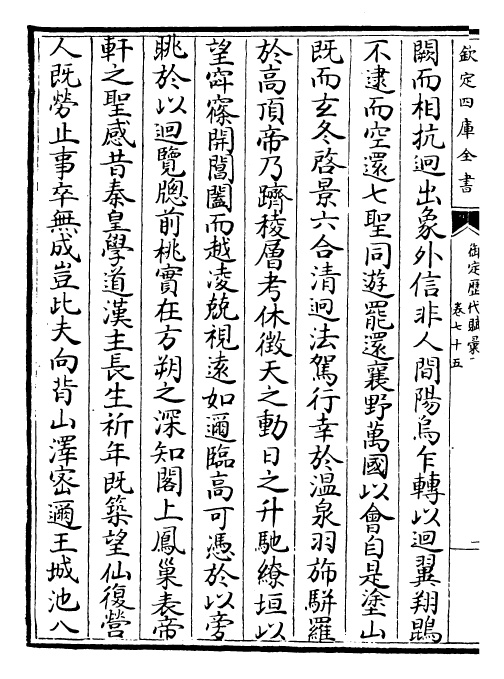 欽定四庫全書
御定歷代賦彙
卷七十五
一
闕而相抗迥出象外信非人間陽烏乍轉以迴翼翔鵾
不逮而空還七聖同遊罷還襄野萬國以會自是塗山
既而玄冬啓景六合清迥法駕行幸於温泉羽斾駢羅
於高頂帝乃躋稜層考休徵天之動日之升馳繚垣以
望窂寮開閶闔而越凌兢視遠如邇臨高可憑於以旁
眺於以迴覽牕前桃實在方朔之深知閣上鳳巢表帝
軒之聖感昔秦皇學道漢主長生祈年既築望仙復營
人既勞止事卒無成豈此夫向背山澤密邇王城池八